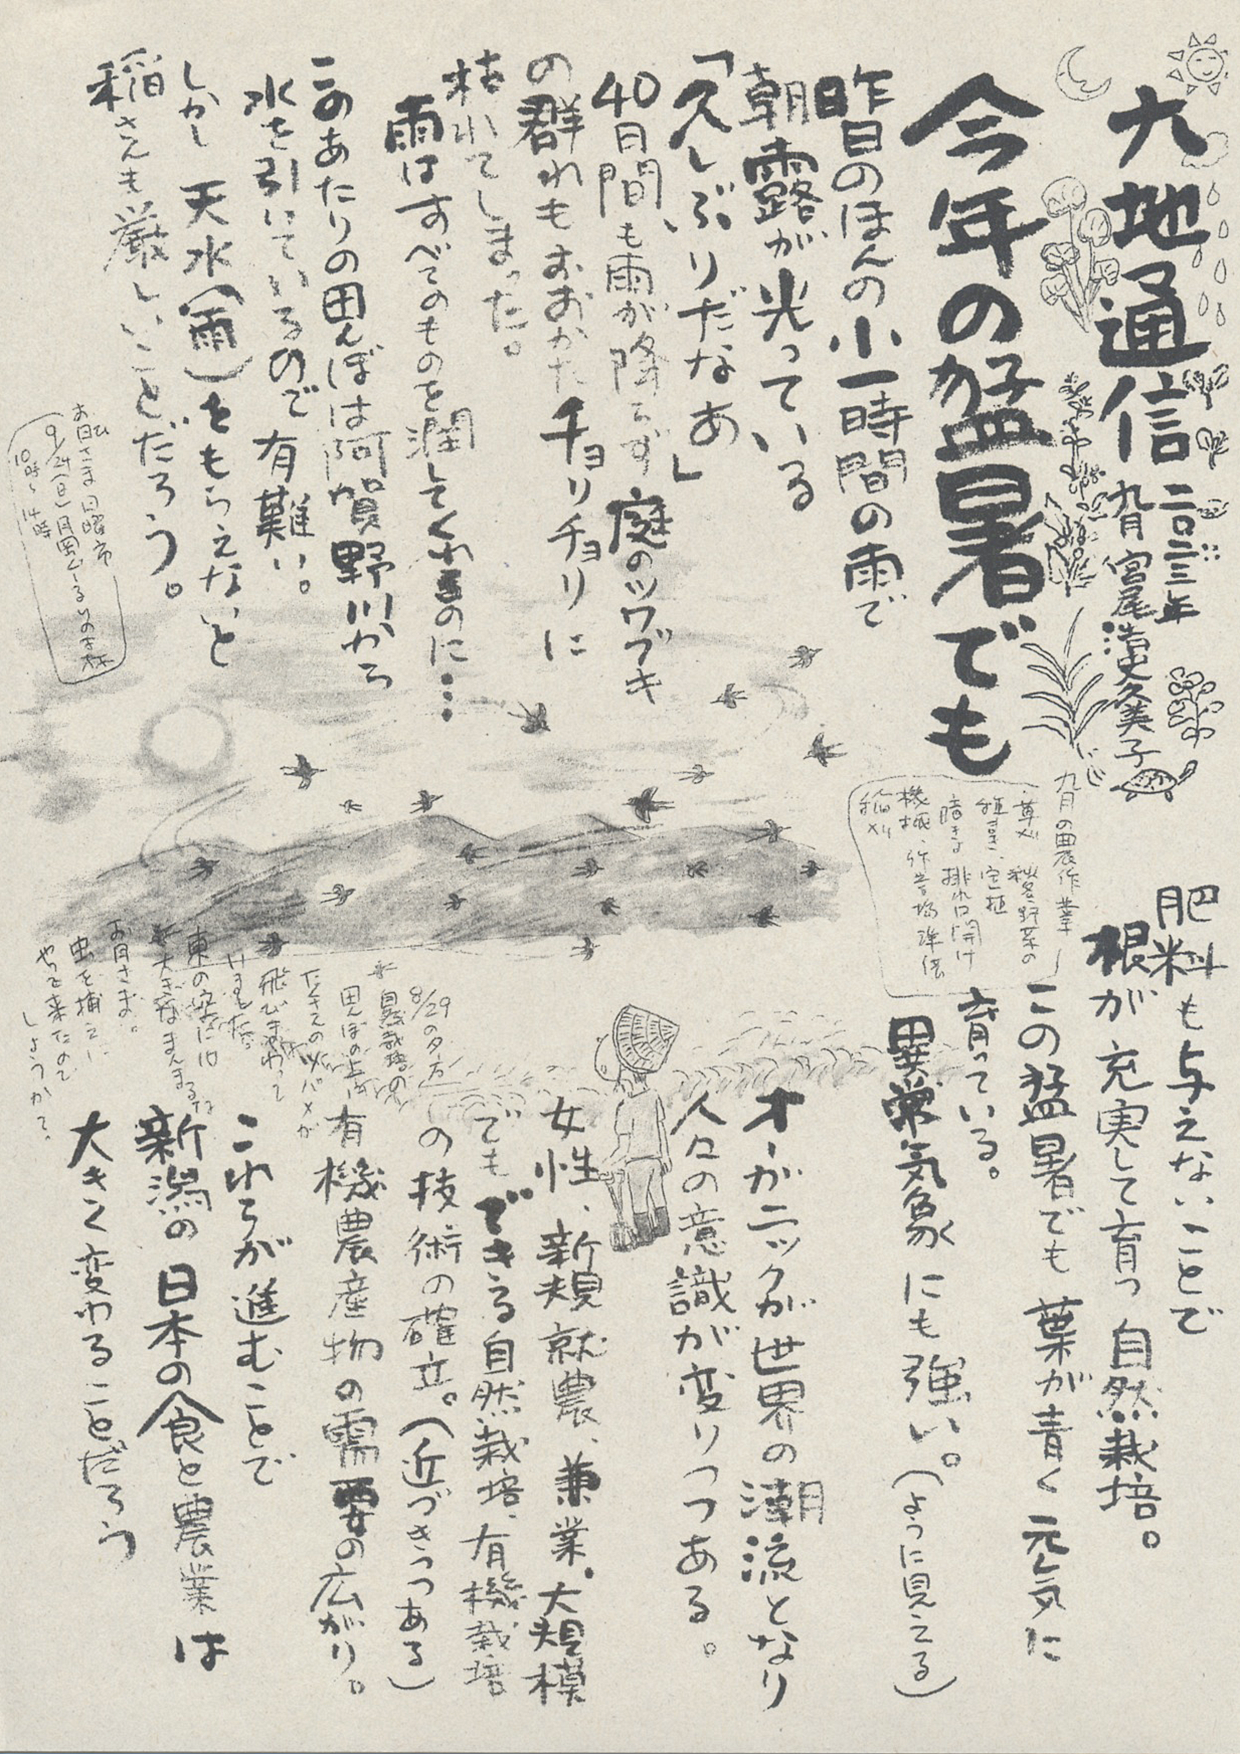 大地通信
二〇二三年
九月 宮尾浩史久美子
今年の猛暑でも
昨日のほんの小一時間の雨で
朝露が光っている
「久しぶりだなあ」
40日間も雨が降らず 庭のツワブキ
の群れもおおかたチョリチョリに
枯れてしまった。
雨はすべてのものを潤してくれるのに…
このあたりの田んぼは阿賀野川から
水を引いているので 有難い。
しかし 天水(雨)をもらえないと
稲さんも厳しいことだろう。
お日さま日曜市
9/24(日)月岡
10時〜14時
九月の農作業
・草刈 秋冬野菜の
種まき、定植
暗きょ排水口開け
機械、作業場準備
稲刈り
肥料も与えないことで
根が充実して育つ 自然栽培。
この猛暑でも 葉が青く元気に
育っている。
異常気象にも強い。(ように見える)
オーガニックが世界の潮流となり
人々の意識が変りつつある。
女性、新規就農、兼業、大規模
でもできる自然栽培、有機栽培
の技術の確立。(近づきつつある)
有機農産物の需要の広がり。
これらが進むことで
新潟の日本の食と農業は
大きく変わることだろう
8/29の夕方
自然栽培の
田んぼの上に
たくさんのツバメが
飛びまわって
いました。
東の空には
大きなまんまるな
お月さま。
虫を捕えに
やって来たので
しょうか?